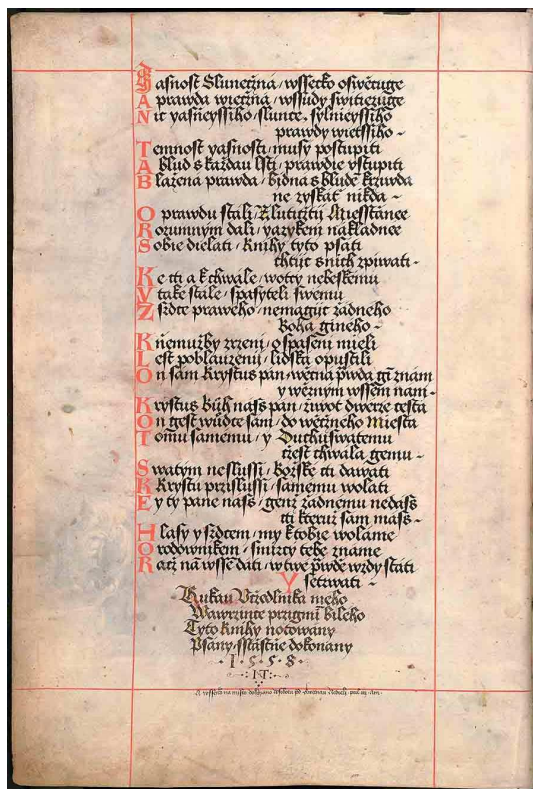 Jasnost Slunečzná / wssecko oswěcuge
Aprawda wiečzná / wssudy switiezuge
Nic yasnieyssiho / slunce, sylnieyssiho
prawdy wietssiho ~
Temnost yasnosti / musy postupiti
A blud s každau lsti / prawdie vstupiti
Blažena prawda / bidna s bludē krziwda
ne zyskať nikda ~
O prawdu stali / Žlutitzti Miesstianee
Rozumnym dali / yazykem nakladnee
Sobie dielati / knihy tyto psati
chtijc s nich zpiwati ~
Ke cti a k chwale / wotcy nebeskému
Y take stale / spasyteli swemu
Zsrdce praweho / nemagijc žadneho
Boha gineho ~
K niemužby zrzeni / o spaseni mieli
Lest poblauzenij / lidska opustili
On sam krystus pan / wěčna p̄wda gī znám
y wěrnym wssem nam ~
Krystus Bůh nass pan / žiwot dwerze cesta
On gest wůdce sam / do wěčneho Miesta
Tomu samemu / y Duchu swatemu
čest chwala gemu ~
Swatym neslussi / božske cti dawati
Krystu przislussi / samemu wolati
Ey ty pane nass / genž žadnemu nedass
cti kteruž sam mass ~
Hlasy y srdcem / my k tobie wolame
Orodownikem / smirtci tebe zname
Račž na wsse dati / w twe p̄wde wzdy stati
Y setrwati ~
Rukau Vrzedlnika meho
Wawrzince przigmi bileho
Tyto knihy notowany
Psany / sstastnie dokonany
· 1 · 5 · 5 · 8 ·
·: IT :·